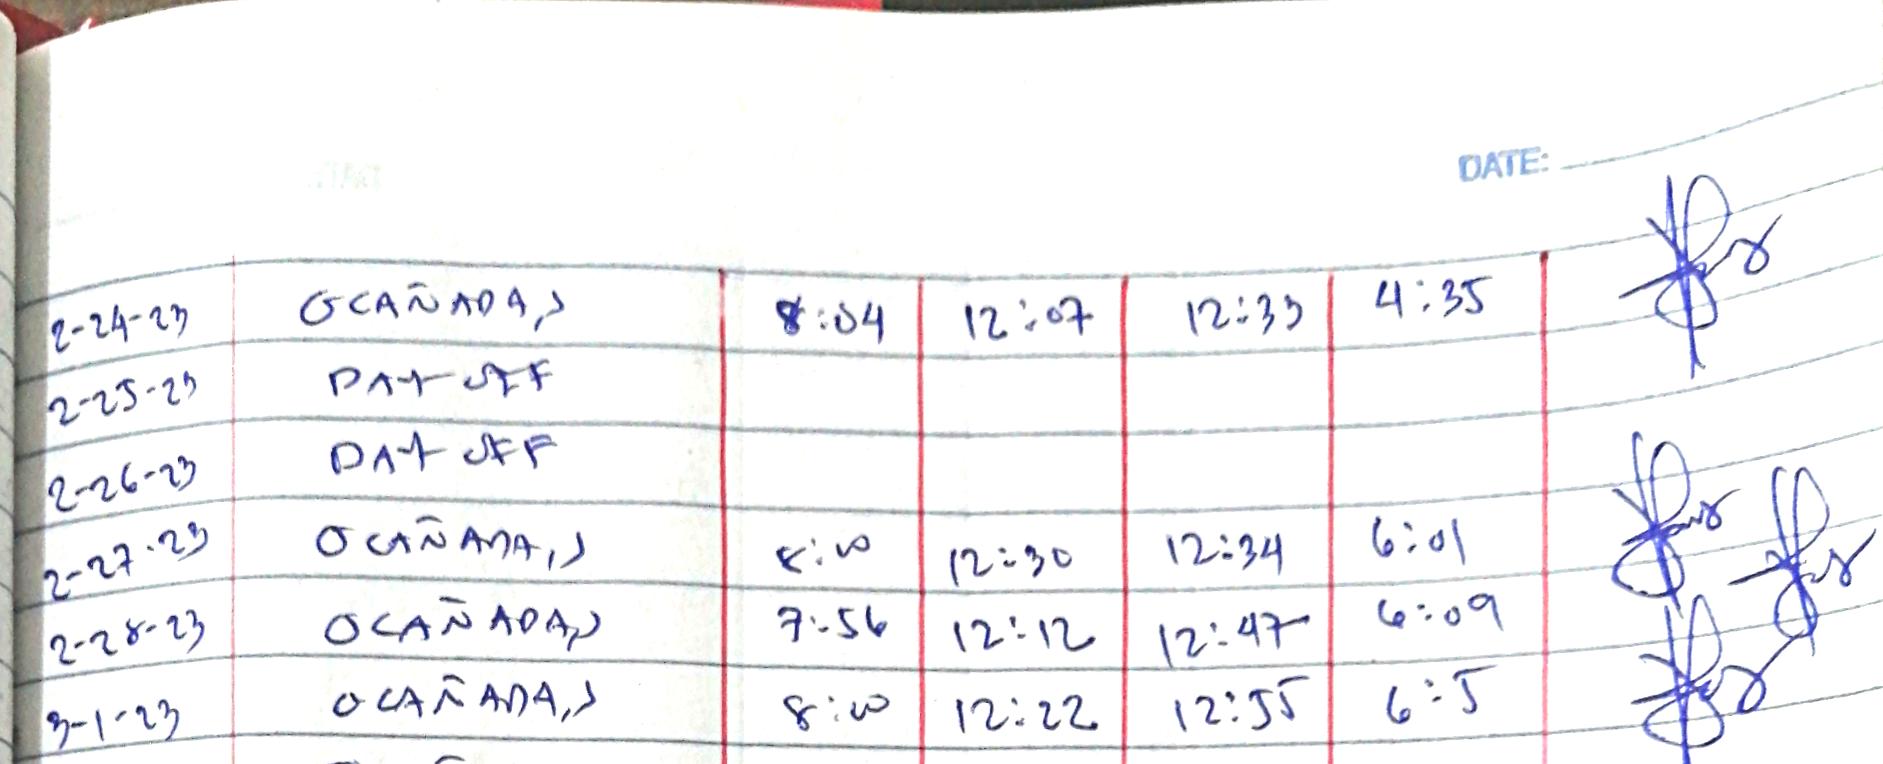 DATE:
2-24-23 OCAÑADA, J 8:04 12:07 12:33 4:35
2-25-23 DAY OFF
2-26-23 DAY OFF
2-27-23 OCAÑADA, J 8:00 12:30 12:34 6:01
2-28-23 OCAÑADA, J 7:56 12:12 12:47 6:09
3-1-23 OCAÑADA, J 8:00 12:22 12:55 6:5